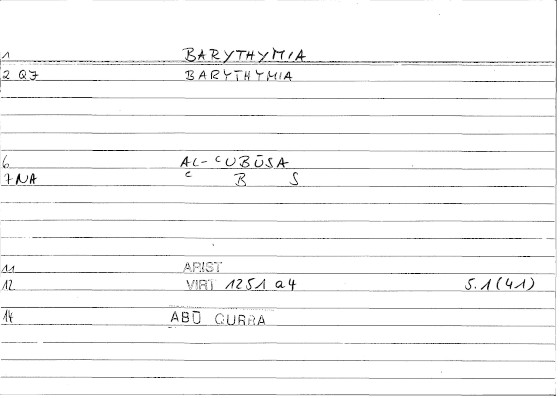 1 BARYTHYMIA
2 QZ BARYTHYMIA
6 AL-ʿUBŪSA
7 NA ʿ B S
11 ARIST
12 VIRT 1251 a4 5.1(41)
14 ABŪ QURRA